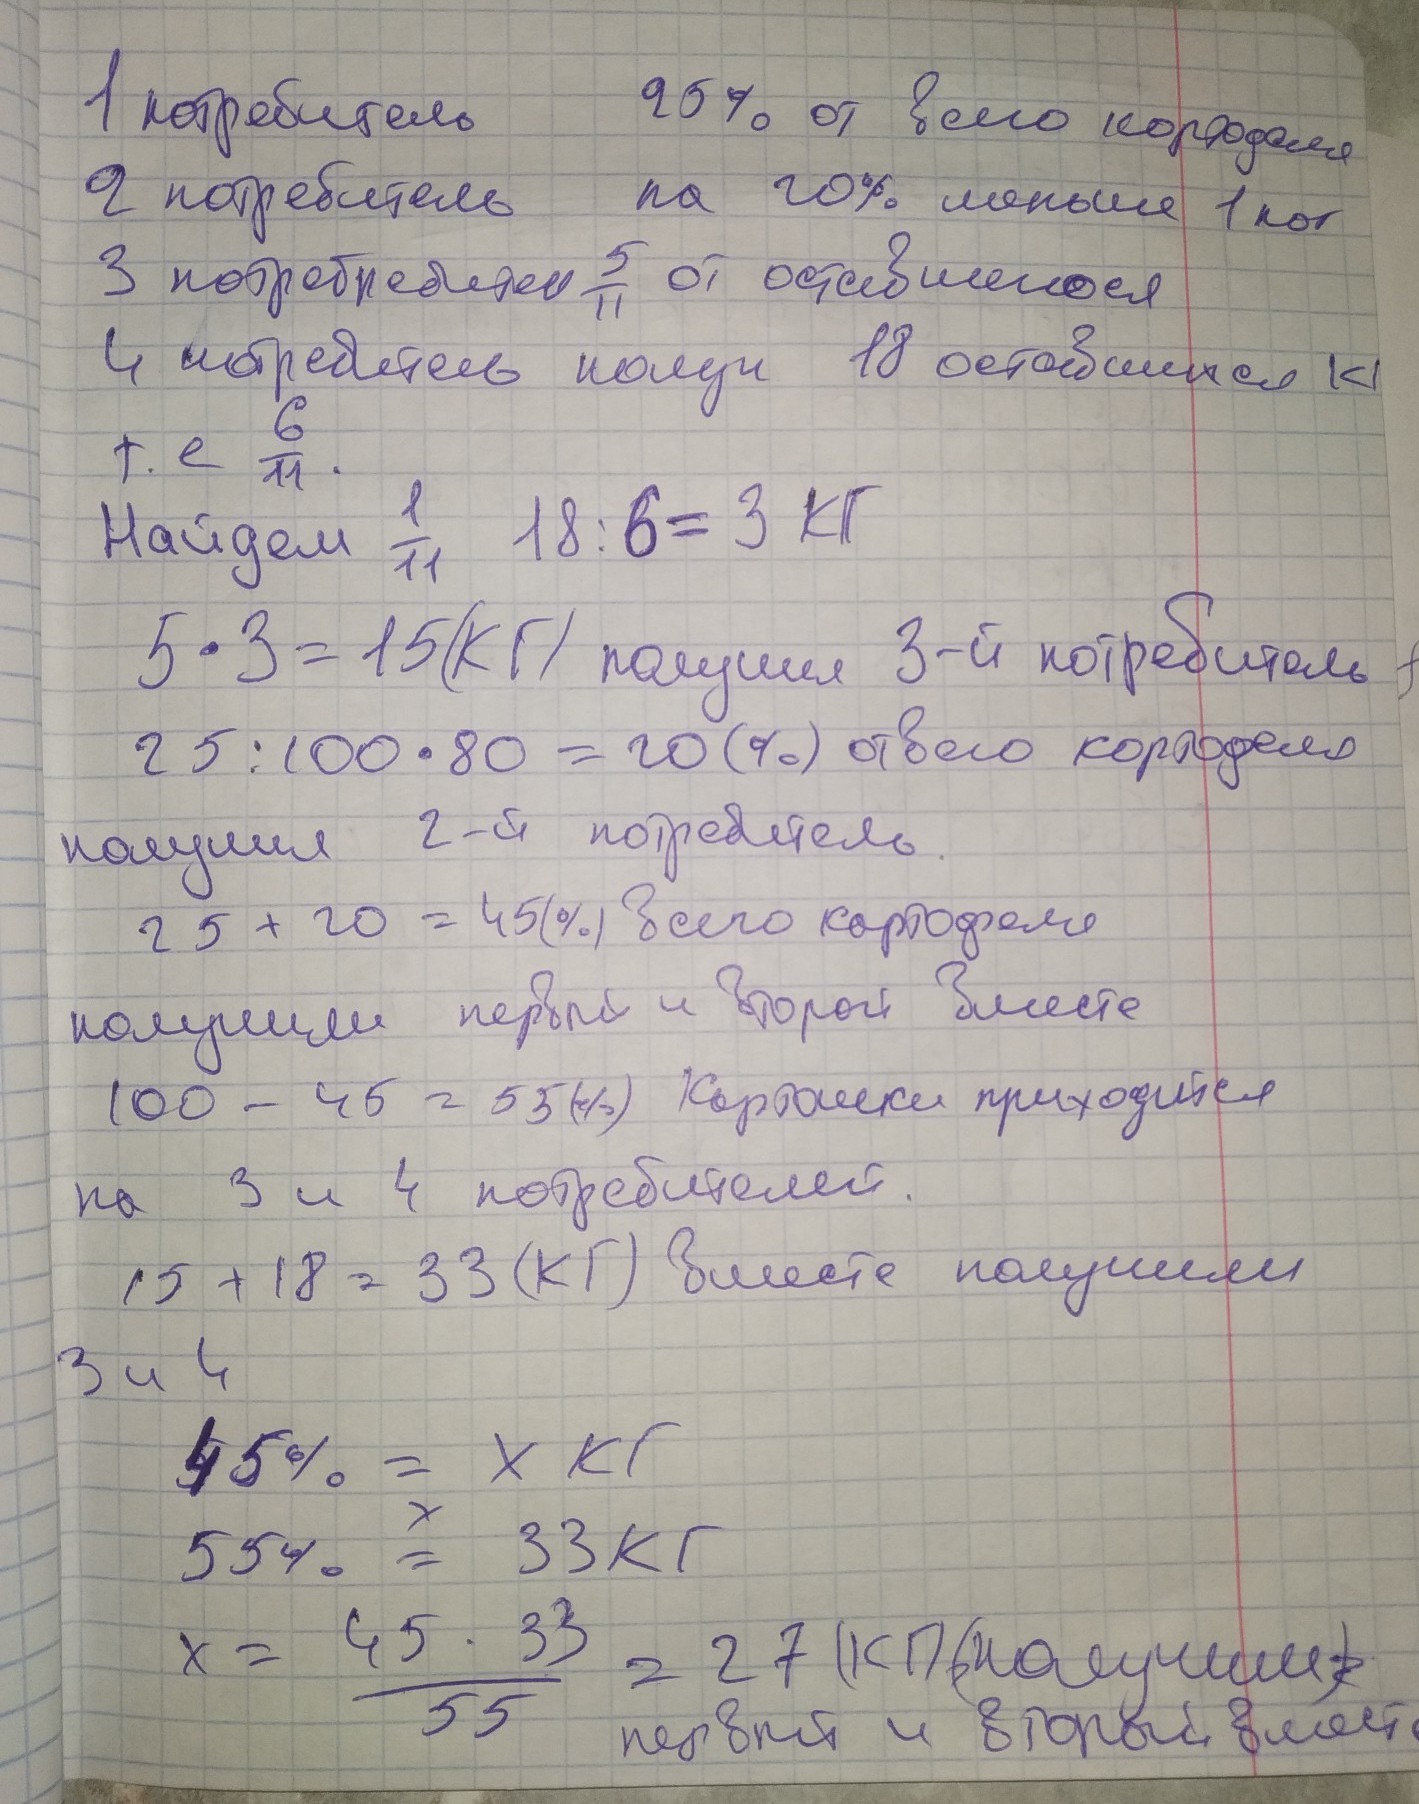 1 потребитель 25% от всего кортофеля
2 потребитель на 20% меньше 1 пот
3 потребребител 5/11 от оставшегося
4 потребитель получ 18 оставшихся кг
т. е 6/11.
Найдем 1/11 18:6=3 КГ
5·3=15(КГ) получил 3-й потребитель
25:100·80=20(%) от всего кортофеля
получил 2-й потребитель.
25+20=45(%) всего картофеля
получили первый и второй вместе
100-45=55(%) Картошки приходится
на 3 и 4 потребителей.
15+18=33(КГ) вместе получили
3 и 4
45% = х КГ
х
55% = 33КГ
х = 45·33/55 = 27 (КГ) получили
первый и вторый вместе